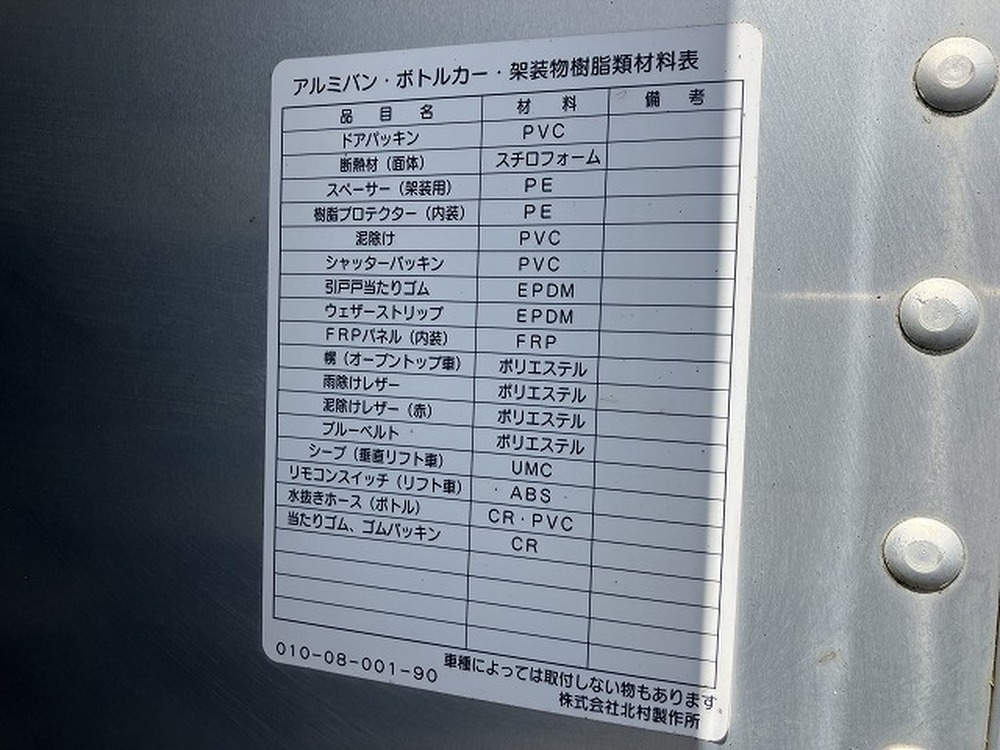 アルミバン・ボトルカー・架装物樹脂類材料表
品目名 材料 備考
ドアパッキン PVC
断熱材（面体） スチロフォーム
スペーサー（架装用） PE
樹脂プロテクター（内装） PE
泥除け PVC
シャッターパッキン PVC
引戸戸当たりゴム EPDM
ウェザーストリップ EPDM
FRPパネル（内装） FRP
幌（オープントップ車） ポリエステル
雨除けレザー ポリエステル
泥除けレザー（赤） ポリエステル
ブルーベルト ポリエステル
シーブ（垂直リフト車） UMC
リモコンスイッチ（リフト車） ABS
水抜きホース（ボトル） CR・PVC
当たりゴム、ゴムパッキン CR
010-08-001-90 車種によっては取付しない物もあります。
株式会社北村製作所